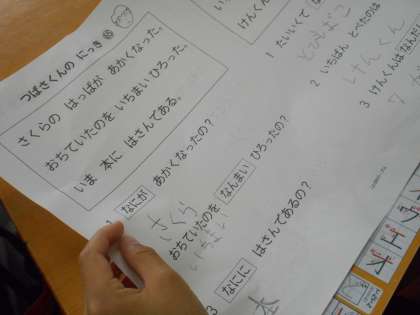 つばさくんの にっき
さくらの はっぱが あかくなった。
おちていたのを いちまい ひろった。
いま 本に はさんである。
なにが あかくなったの？
さくら
おちていたのを なんまい ひろったの？
いちまい
3 なにに はさんであるの？
本
けんくん
1 たいいくで
とびばこ
2 いちばん とべたのは
けんくん
3 けんくんは なんだ
7